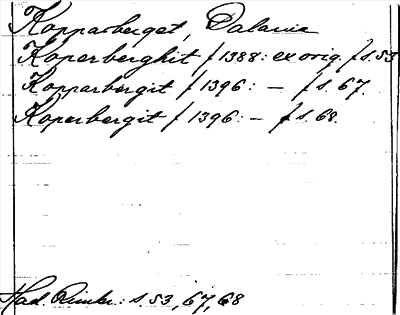 Kopparberget, Dalarne
Koperberghit f 1388: ex orig. f s. 53
Kopparbergit f 1396: – f s. 67.
Koperbergit f 1396: – f s. 68.
Had. Rimkr.: s. 53, 67, 68